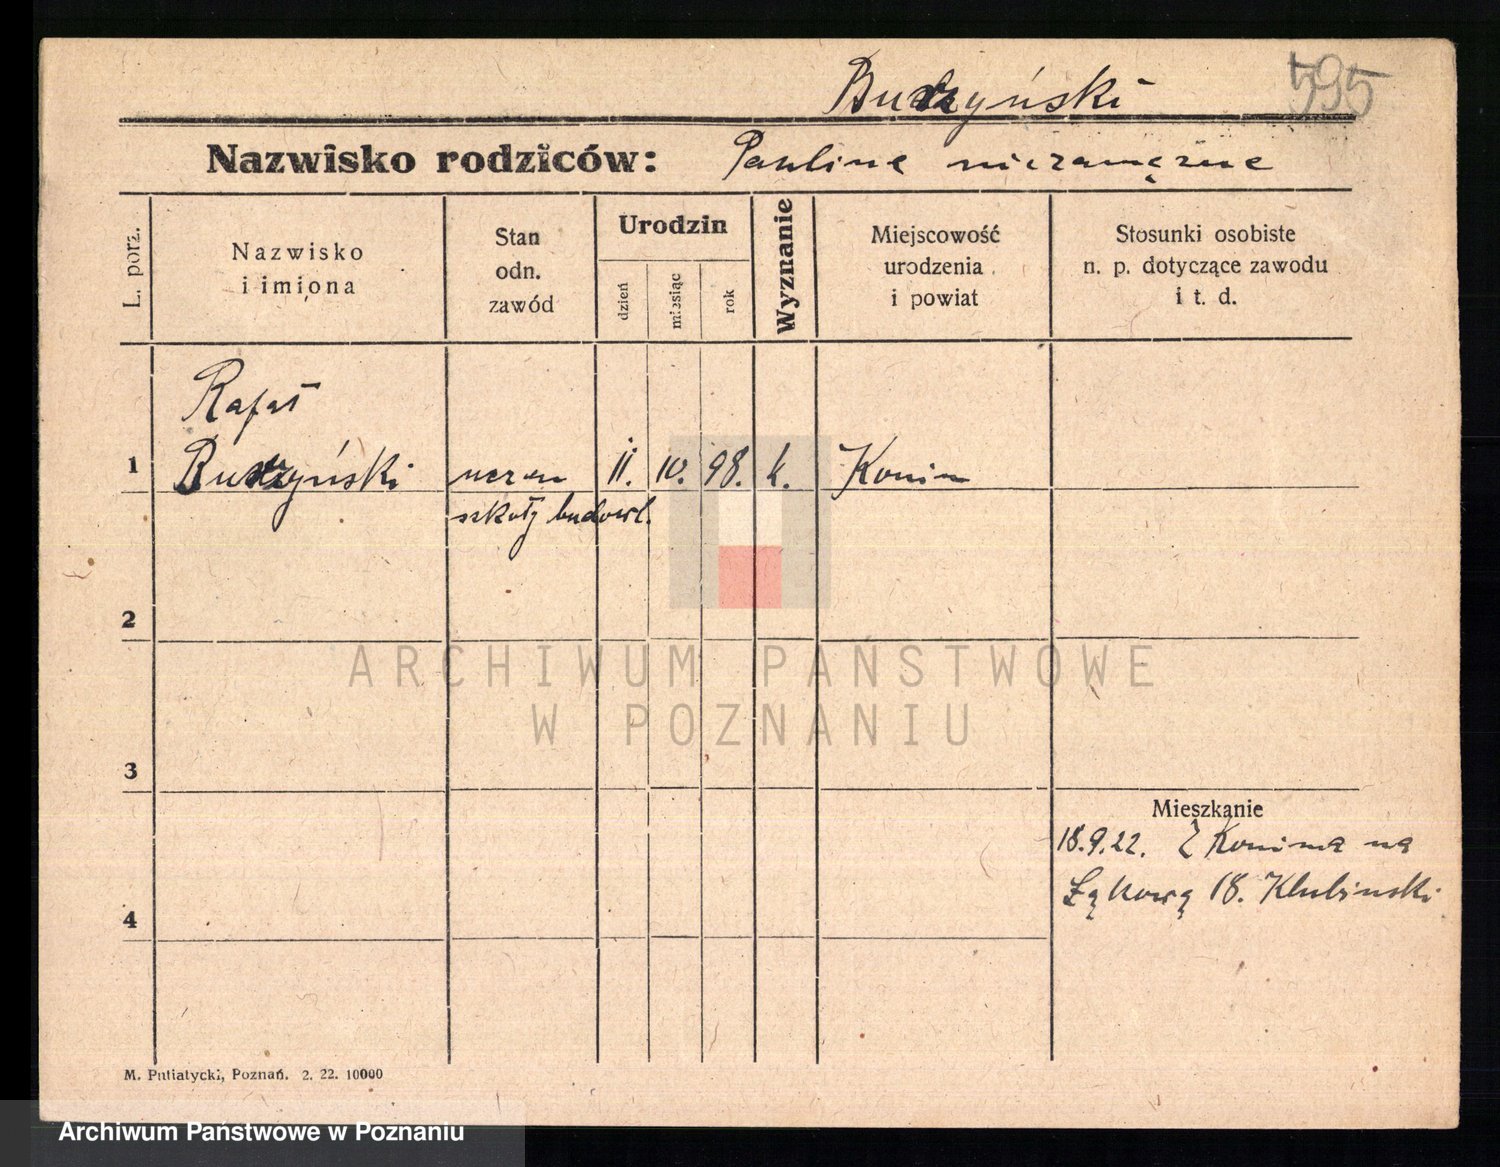 Burzyński 595
Nazwisko rodziców: Pauline niezamężne
L. porz.
Nazwisko
i imiona
Stan
odn.
zawód
Urodzin
dzień
miesiąc
rok
Wyznanie
Miejscowość
urodzenia
i powiat
Stosunki osobiste
n. p. dotyczące zawodu
i t. d.
Rafał
1 Burzyński uczen 11. 10. 98. k. Konin
szkoły budowl.
2
ARCHIWUM PAŃSTWOWE
W POZNANIU
3
Mieszkanie
18.9.22. Z Konina na
Łąkową 18. Klubinski
4
M. Putiatycki, Poznań. 2. 22. 10000
Archiwum Państwowe w Poznaniu